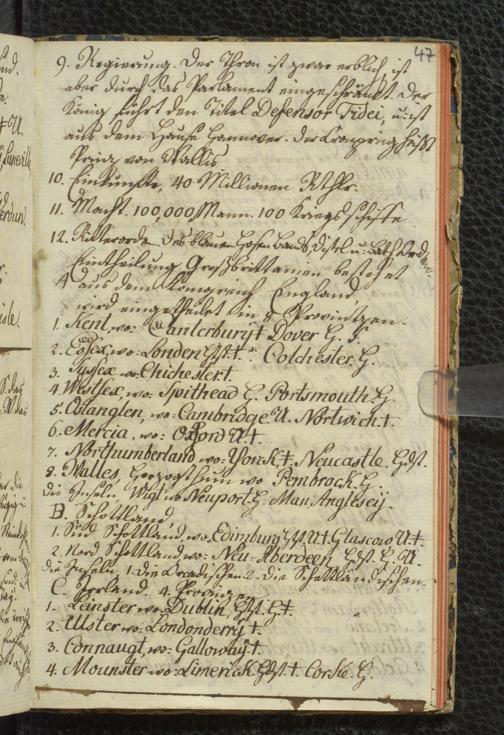 47
9. Regierung. Der Thron ist zwar erblich ist
aber durch das Parlament eingeschränkt. Der
König führt den Titel Defensor Fidei, u: ist
aus dem Hause Hannover. Der Cronprinz heißt
Prinz von Wallis
10. Einkünfte, 40 Millionen Rthlr.
11. Macht. 100,000 Mann. 100 Kriegs Schiffe
12. Ritterorden. Des blauen Hosen Bands, Distel u: Bath Orden
Eintheilung Großbrittannien bestehet
A aus dem Königreich England
wird eingetheilet in 8 Provintzen.
1. Kent, wo: Canterbury† Dover G.
2. Essex, wo: London †. Colchester G.
3. Sussex wo: Chichester†.
4. Westsex, wo: Spithead G. Portsmouth G.
5. Ostanglen, wo: Cambridge U. Nortwich †.
6. Mercia, wo: Oxford U †.
7. Northumberland wo: York †, Neucastle
8. Walles, Herzogthum wo Pembrock G.
die Inseln, Wigt wo Neuport G. Man, Anglesey.
B. Schottland
1. Süd Schottland, wo: Edinburg U † Glascow U †.
2. Nord Schottland wo: Neu-Aberdeen U.
die Inseln 1. die Orcadischen 2. die Schettländischen.
C. Irrland. 4. Provinzen
1. Leinster wo: Dublin †
2. Ulster wo: Londonderry †.
3. Connaugt, wo: Galloway †.
4. Mounster wo: Limerick † Corke G.